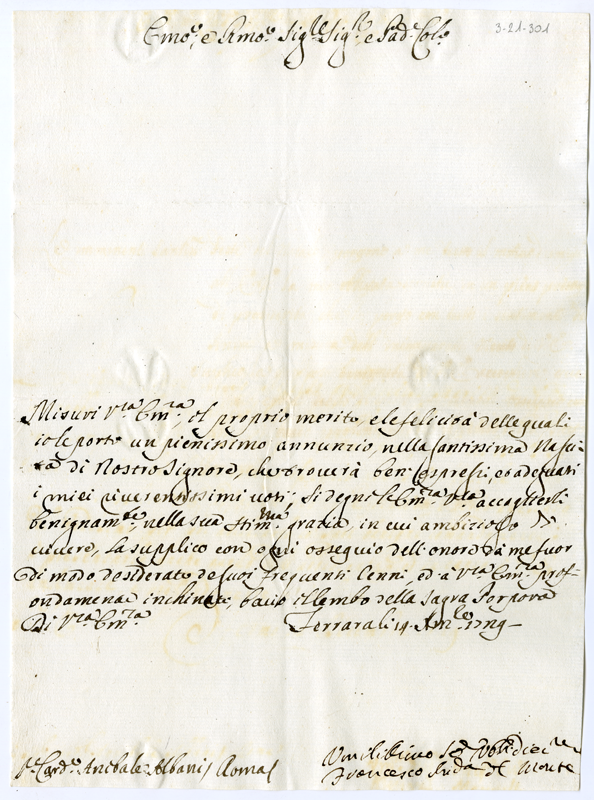 Emo. e Rmo. Sig.re Sig.re e Pad.e Col.o
3-21-301
Misuri V.ra Em.za, col proprio merito, e le felicità delle quali
io le porto un pienissimo annunzio, nella santissima Nasci-
ta di Nostro Signore, che troverà ben espressi, ed adequati
i miei riverentissimi voti. Si degni l'Em.za V.ra accoglierli
benignam.te, nella sua stim.ma grazia, in cui ambizioso
vivere, la supplico con ogni ossequio dell'onore da me fuor
di modo desiderato de suoi frequenti Cenni, ed a V.ra Em.za prof-
ondamente inchinato, bacio il lembo della Sagra Porpora
Di V.ra Em.za Ferrara li 14
Card. Anibale Albani Roma
Umilissimo Ser.
Francesco Monte